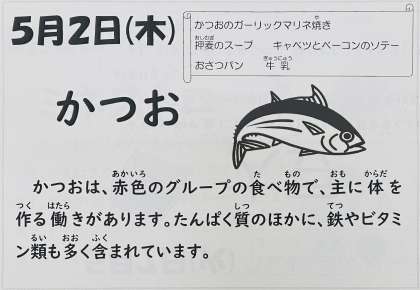 5月2日(木)
かつおのガーリックマリネ焼き
押麦のスープ　キャベツとベーコンのソテー
おさつパン　牛乳
かつお
かつおは、赤色のグループの食べ物で、主に体を
作る働きがあります。たんぱく質のほかに、鉄やビタミ
ン類も多く含まれています。